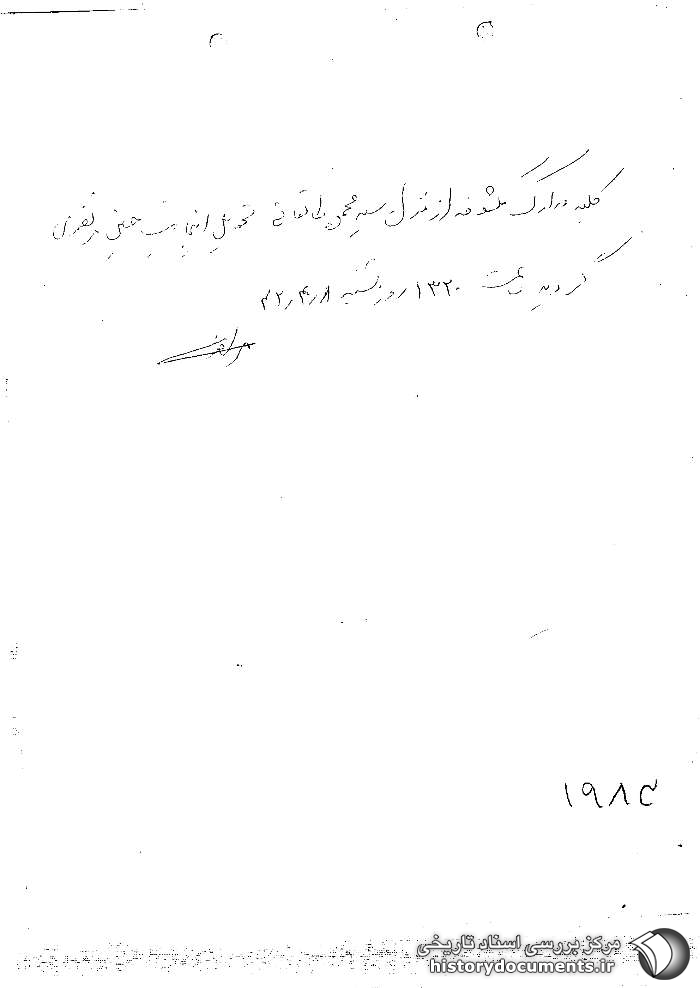 کلیه مدارک مکشوفه از منزل سید محمود طالقانی تحویل اینجانب
گردید ساعت ۱۳۲۰ روز شنبه ۴۲/۴/۸
۱۹۸۴
مرکز بررسی اسناد تاریخی
historydocuments.ir